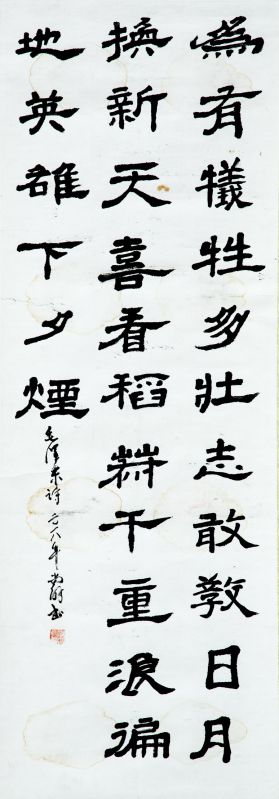 為有犧牲多壯志敢教日月
換新天喜看稻菽千重浪徧
地英雄下夕煙
毛澤東詩 六八年 书